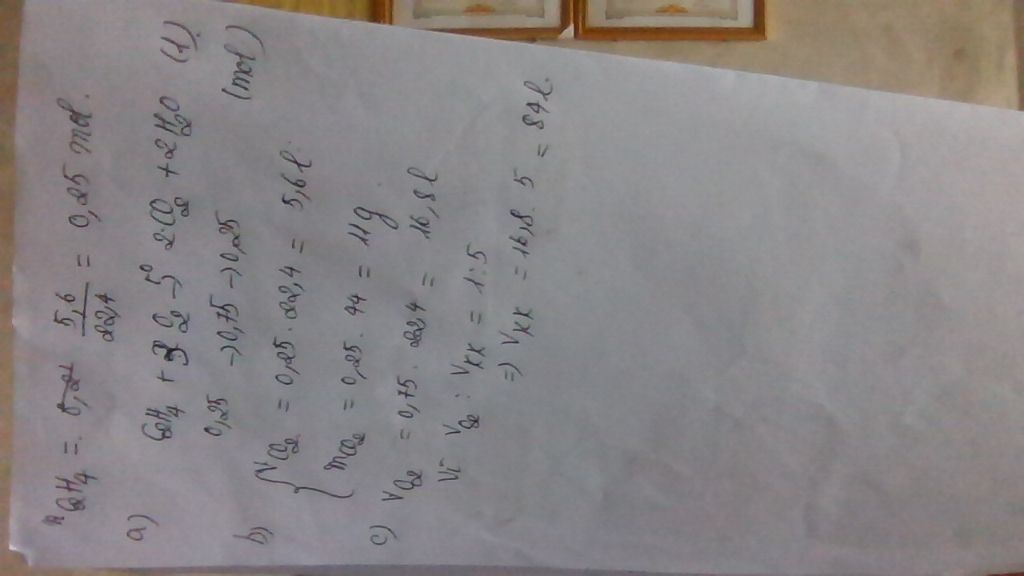 nC2H4 = 5,6/22,4 = 0,25 mol.
a) C2H4 + 3 O2 -t°> 2CO2 + 2H2O (1).
0,25 → 0,75 → 0,25 (mol)
b) { VCO2 = 0,25 . 22,4 = 5,6 l.
mCO2 = 0,25 . 44 = 11 g
c) VO2 = 0,75 . 22,4 = 16,8 l
Vì VO2 : VKK = 1:5
=> VKK = 16,8 . 5 = 84 l.